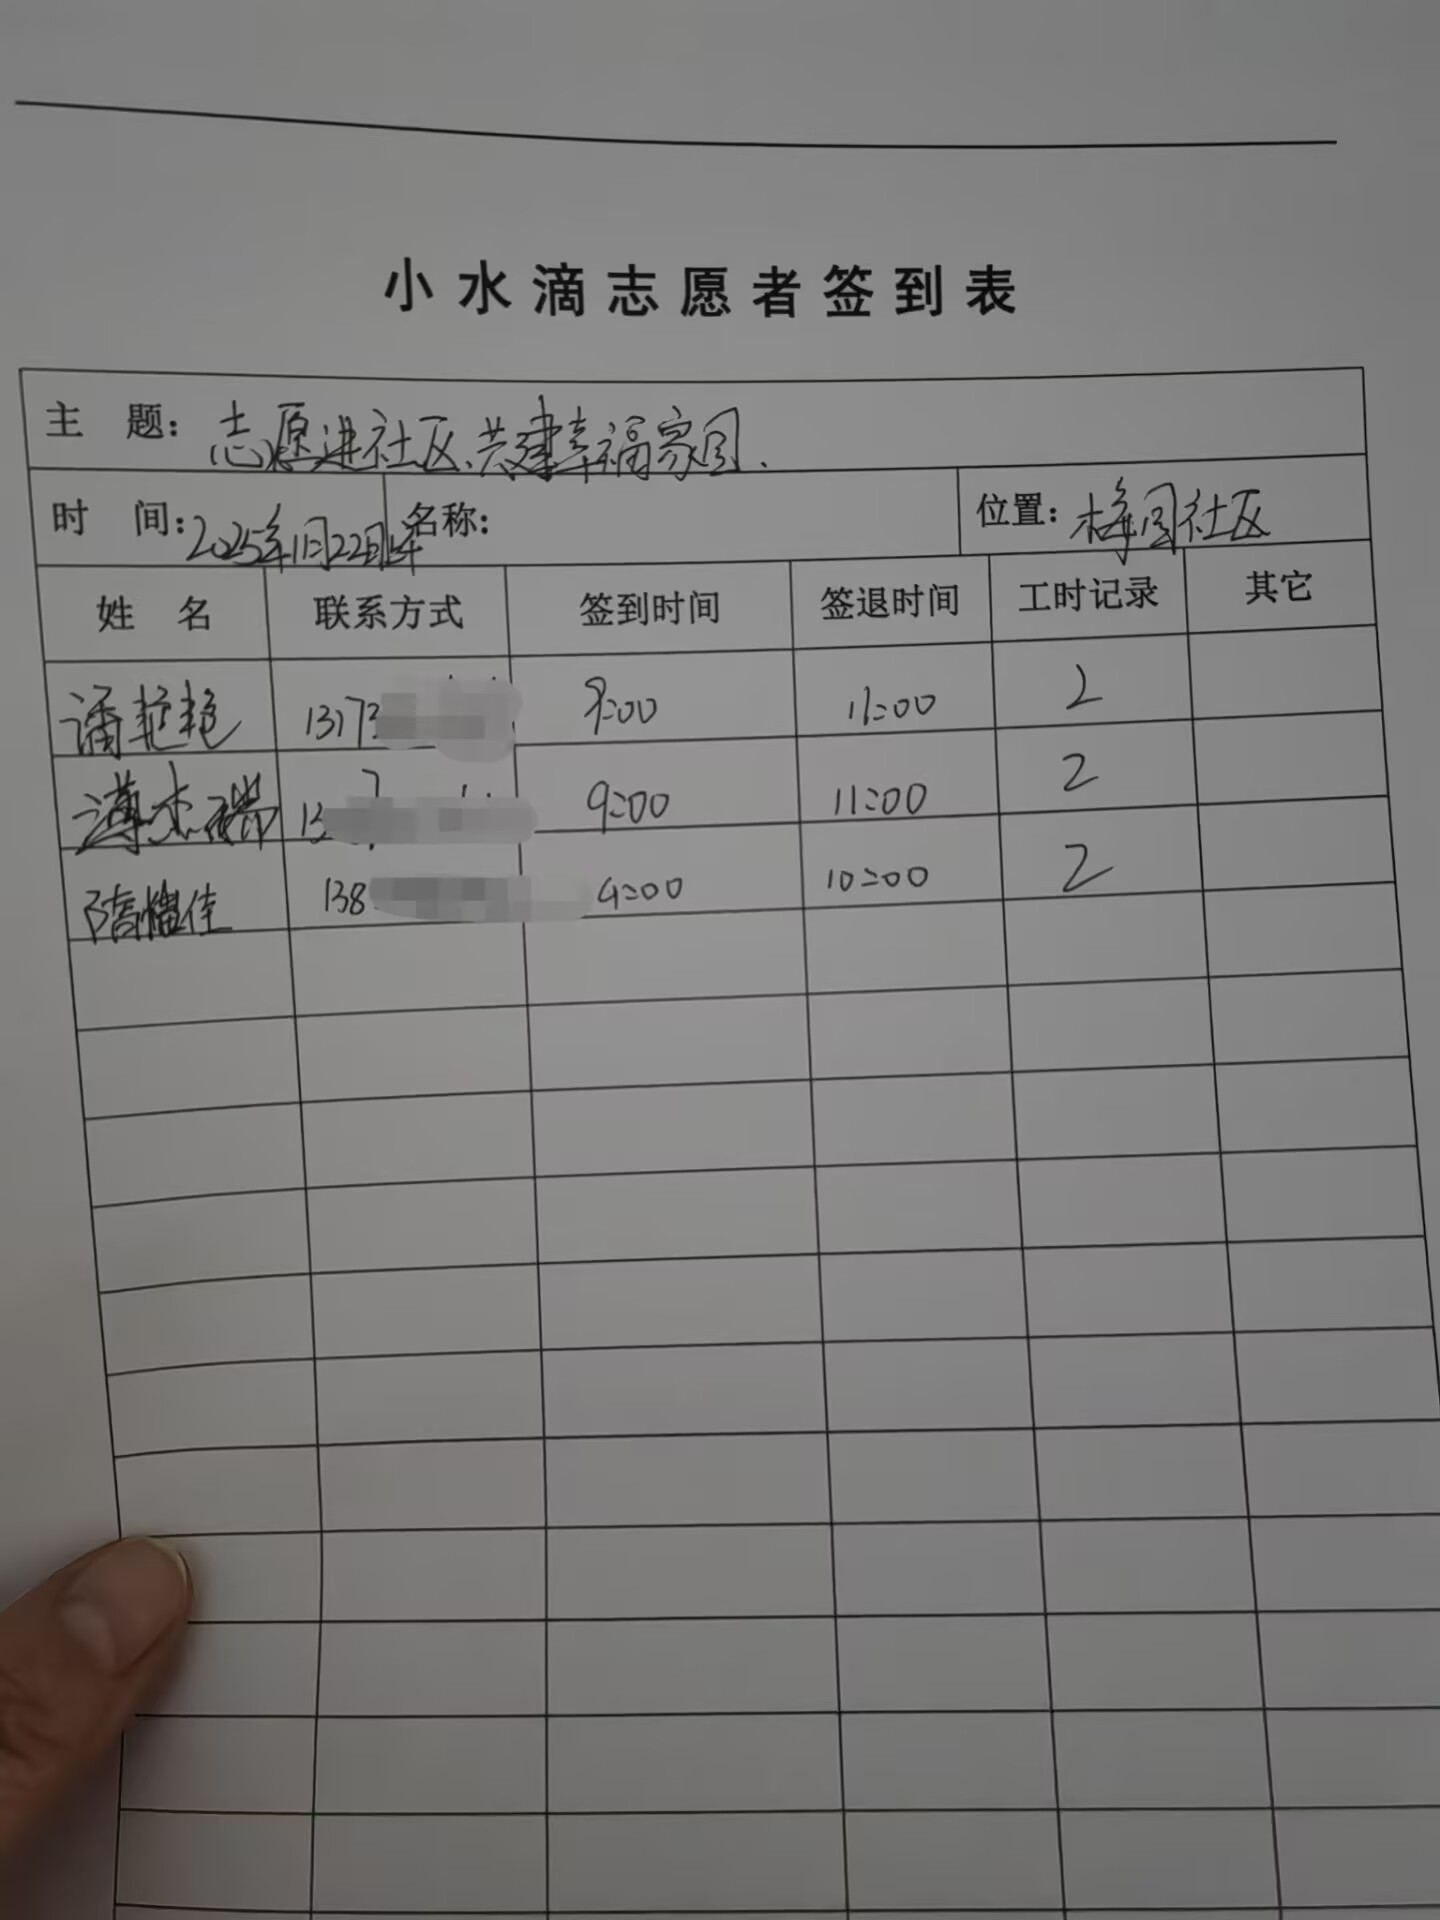 小水滴志愿者签到表
主 题: 志愿进社区、共建幸福家园.
时 间: 2025年11月22日 名称: 位置: 梅园社区
姓 名 联系方式 签到时间 签退时间 工时记录 其它
潘艳艳 13173 9:00 11:00 2
13 9:00 11:00 2
佳 138 9:00 10:00 2